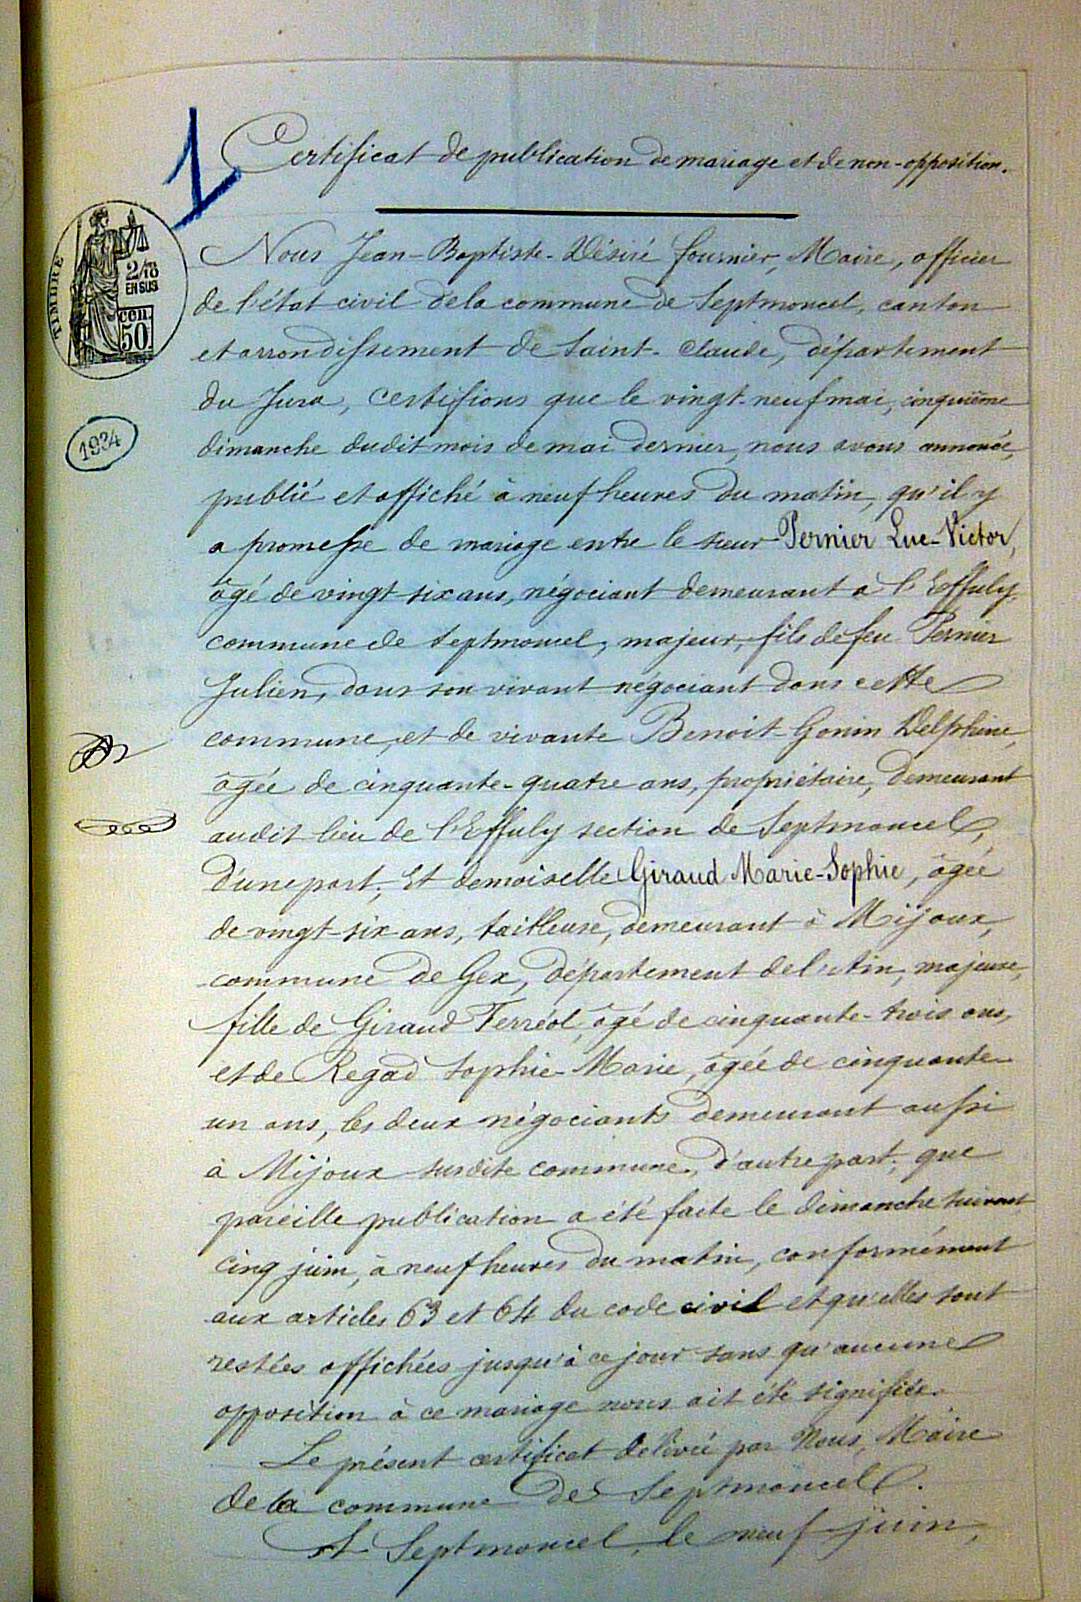 1
Certificat de publication de mariage et de non-opposition.
TIMBRE
2/10
EN SUS
CEN.
50
Nous Jean-Baptiste-Désiré Fournier, Maire, officier
de l'état civil de la commune de Septmoncel, canton
et arrondissement de Saint-Claude, département
du Jura, certifions que le vingt-neuf mai, cinquième
dimanche dudit mois de mai dernier, nous avons annoncé,
1934
publié et affiché à neuf heures du matin, qu'il y
a promesse de mariage entre le sieur Pernier Luc-Victor,
âgé de vingt-six ans, négociant demeurant à l'Effuly,
commune de Septmoncel, majeur, fils de feu Pernier
Julien, dans son vivant négociant dans cette
commune, et de vivante Benoit-Gonin Delphine,
âgée de cinquante-quatre ans, propriétaire, demeurant
audit lieu de l'Effuly section de Septmoncel,
d'une part; Et demoiselle Giraud Marie-Sophie, âgée
de vingt-six ans, tailleuse, demeurant à Mijoux,
commune de Gex, département de l'Ain, majeure,
fille de Giraud Ferréol, âgé de cinquante-trois ans,
et de Regad Sophie-Marie, âgée de cinquante
un ans, les deux négociants demeurant aussi
à Mijoux susdite commune, d'autre part; que
pareille publication a été faite le dimanche suivant
cinq juin, à neuf heures du matin, conformément
aux articles 63 et 64 du code civil et qu'elles sont
restées affichées jusqu'à ce jour sans qu'aucune
opposition à ce mariage nous ait été signifiée.
Le présent certificat délivré par Nous, Maire
de la commune de Septmoncel.
A Septmoncel, le neuf juin,